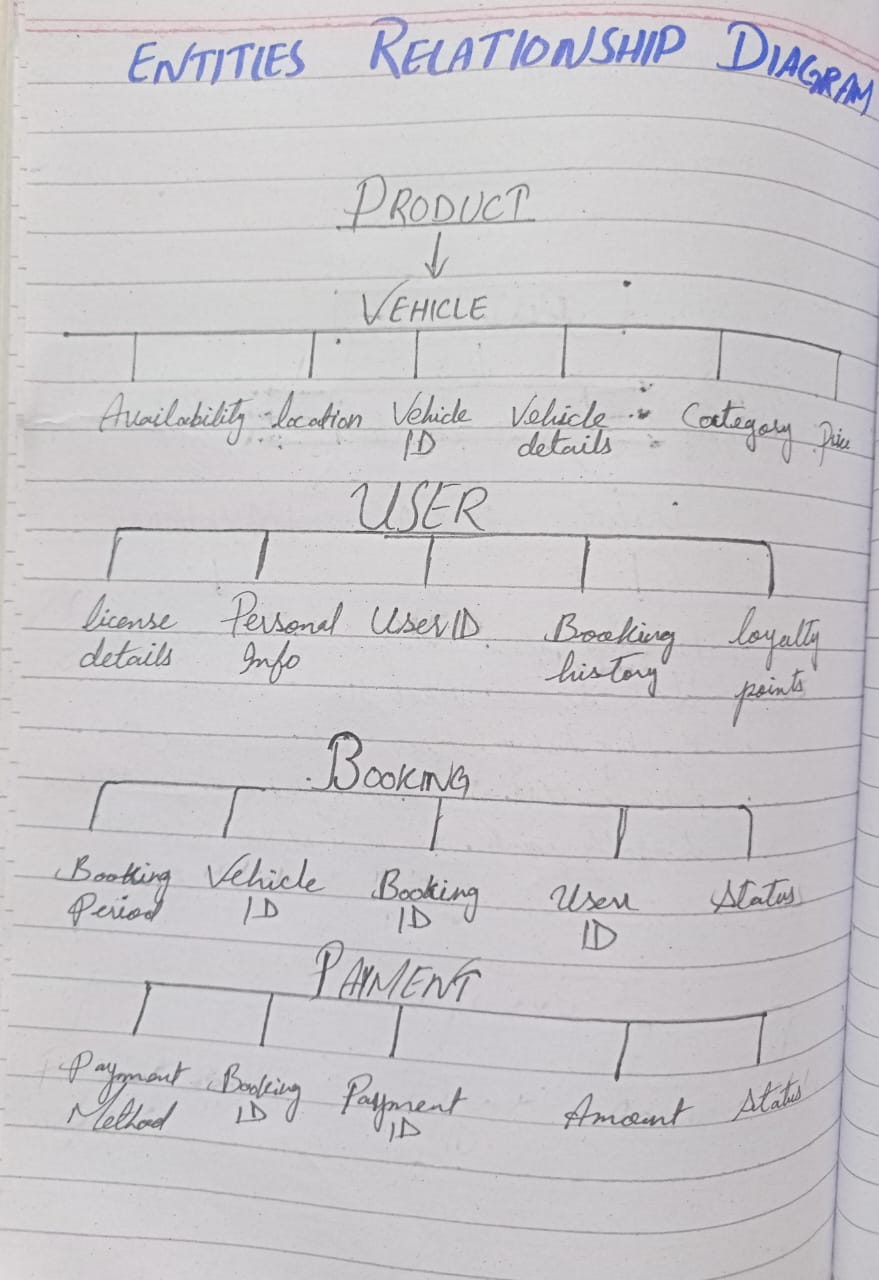 ENTITIES RELATIONSHIP DIAGRAM
PRODUCT
VEHICLE
Availability location Vehicle ID Vehicle details Category Price
USER
license details Personal Info User ID Booking history loyalty points
BOOKING
Booking Period Vehicle ID Booking ID User ID Status
PAYMENT
Payment Method Booking ID Payment ID Amount Status